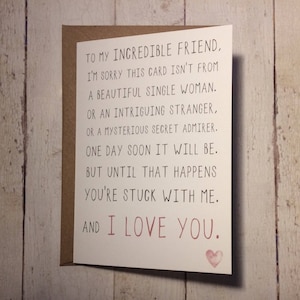 TO MY INCREDIBLE FRIEND,
I'M SORRY THIS CARD ISN'T FROM
A BEAUTIFUL SINGLE WOMAN.
OR AN INTRIGUING STRANGER,
OR A MYSTERIOUS SECRET ADMIRER.
ONE DAY SOON IT WILL BE.
BUT UNTIL THAT HAPPENS
YOU'RE STUCK WITH ME.
AND I LOVE YOU.